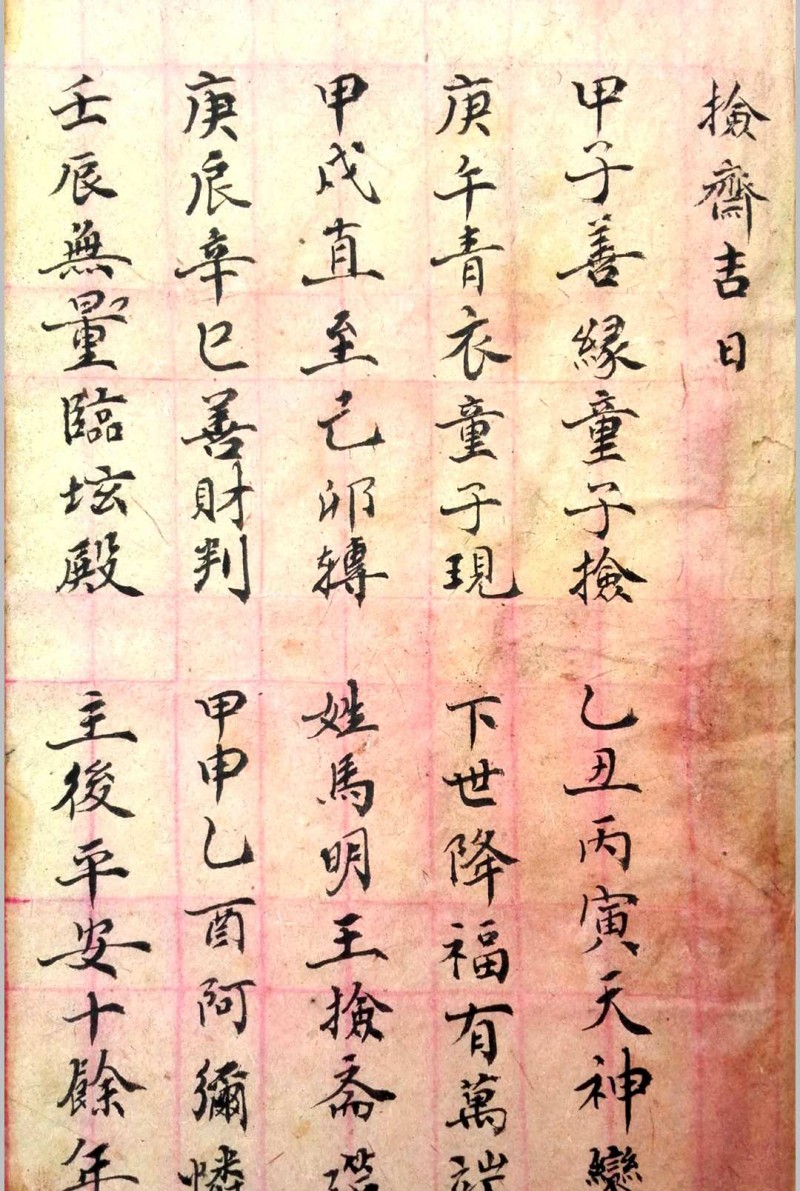 撿齋吉日
甲子善緣童子撿　乙丑丙寅天神
庚午青衣童子現　下世降福有萬
甲戌直至己卯轉　姓馬明王撿斋
庚辰辛巳善財判　甲申乙酉阿彌
壬辰無量臨坛殿　主後平安十餘年